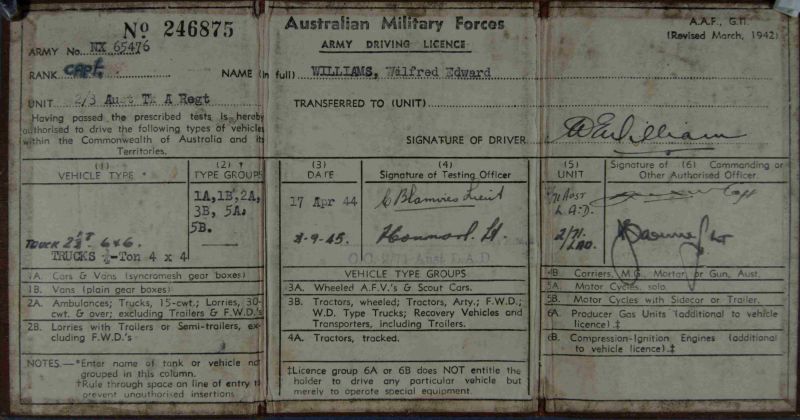 No 246875
ARMY No. NX 65476
RANK Capt.
UNIT 2/3 Aust Tk A Regt
Having passed the prescribed tests is hereby
authorised to drive the following types of vehicles
within the Commonwealth of Australia and its
Territories.
Australian Military Forces
ARMY DRIVING LICENCE
NAME (in full) WILLIAMS, Wilfred Edward
TRANSFERRED TO (UNIT)
SIGNATURE OF DRIVER WEWilliams
A.A.F., G.11.
(Revised March, 1942)
(1)
VEHICLE TYPE *
TRUCK 2½T 6x6.
TRUCKS -Ton 4 x 4
(2) †
TYPE GROUPS
1A,1B,2A,
3B, 5A.
5B.
(3)
DATE
17 Apr 44
-9-45.
(4)
Signature of Testing Officer
C Blamires Lieut
Lt.
O.C. 2/71 Aust L.A.D
(5)
UNIT
/71 AUST
L.A.D.
2/71.
LAD.
Signature of (6) Commanding or
Other Authorised Officer
Capt
1A. Cars & Vans (syncromesh gear boxes)
1B. Vans (plain gear boxes)
2A. Ambulances; Trucks, 15-cwt.; Lorries, 30-
cwt. & over; excluding Trailers & F.W.D.'s
2B. Lorries with Trailers or Semi-trailers, ex-
cluding F.W.D.'s
NOTES.—*Enter name of tank or vehicle not
grouped in this column.
†Rule through space on line of entry to
prevent unauthorised insertions
VEHICLE TYPE GROUPS
3A. Wheeled A.F.V.'s & Scout Cars.
3B. Tractors, wheeled; Tractors, Arty.; F.W.D.;
W.D. Type Trucks; Recovery Vehicles and
Transporters, including Trailers.
4A. Tractors, tracked.
‡Licence group 6A or 6B does NOT entitle the
holder to drive any particular vehicle but
merely to operate special equipment.
4B. Carriers, M.G., Mortar, or Gun, Aust.
5A. Motor Cycles, solo.
5B. Motor Cycles with Sidecar or Trailer.
6A. Producer Gas Units (additional to vehicle
licence).‡
6B. Compression-Ignition Engines (additional
to vehicle licence).‡